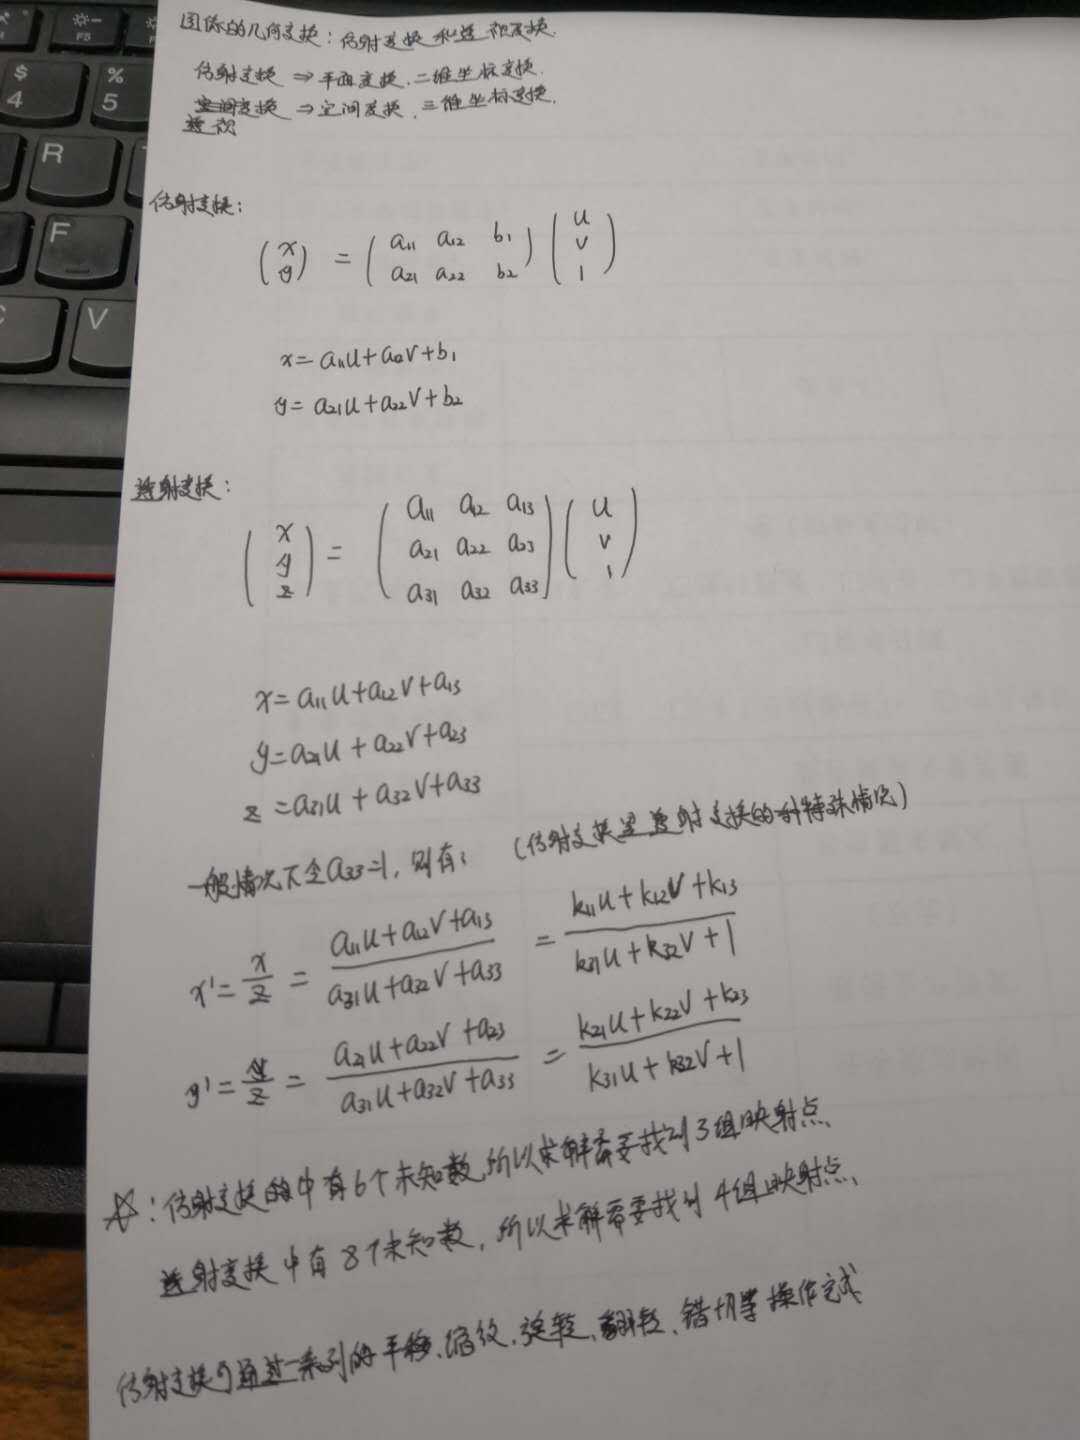 图像的几何变换: 仿射变换和透视变换.
仿射变换 ⇒ 平面变换、二维坐标变换.
空间变换 ⇒ 空间变换、三维坐标变换.
透视
仿射变换:
(x y) = (a11 a12 b1
a21 a22 b2) (u v 1)
x=a11u+a12v+b1
y=a21u+a22v+b2
透射变换:
(x y z) = (a11 a12 a13
a21 a22 a23
a31 a32 a33) (u v 1)
x=a11u+a12v+a13
y=a21u+a22v+a23
z=a31u+a32v+a33
(仿射变换是透射变换的一种特殊情况)
一般情况下令a33=1, 则有:
x'=x/z = (a11u+a12v+a13)/(a31u+a32v+a33) = (k11u+k12v+k13)/(k31u+k32v+1)
y'=y/z = (a21u+a22v+a23)/(a31u+a32v+a33) = (k21u+k22v+k23)/(k31u+k32v+1)
☆: 仿射变换的中有6个未知数,所以求解需要找到3组映射点、
透射变换中有8个未知数, 所以求解需要找到4组映射点、
仿射变换可通过一系列的平移、缩放、旋转、翻转、错切等操作完成
$
4
%
5
F5
R
F
C
V